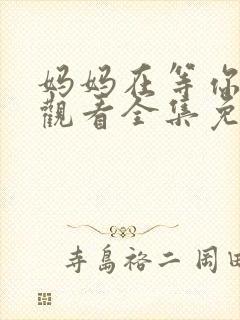 妈妈在等你
觀看全集免
寺島裕二 岡田